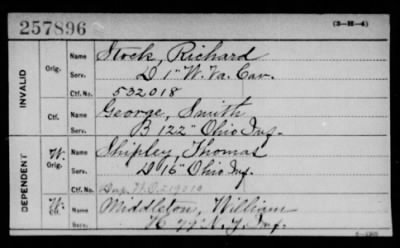 257896
(3-H-4)
INVALID
Orig.
Name Stock, Richard
Serv. D 1" W. Va. Cav.
Ctf. No. 532018
Ctf.
Name George, Smith
Serv. B 122" Ohio Inf.
DEPENDENT
W. Orig.
Name Shipley, Thomas
Serv. D 16" Ohio Inf.
Ctf. No.
W. Ctf.
Name Middleton, William
Serv. N. Y. Inf.